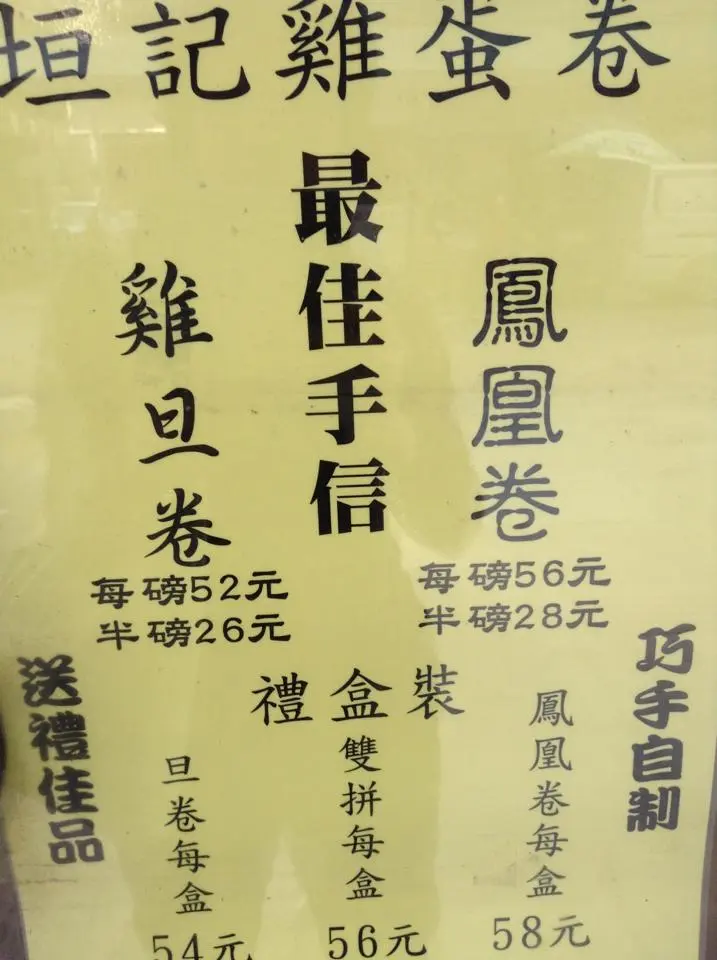 垣記雞蛋卷
最佳手信
雞旦卷
每磅52元
半磅26元
鳳凰卷
每磅56元
半磅28元
巧手自制
送禮佳品
禮盒裝
旦卷每盒
54元
雙拼每盒
56元
鳳凰卷每盒
58元